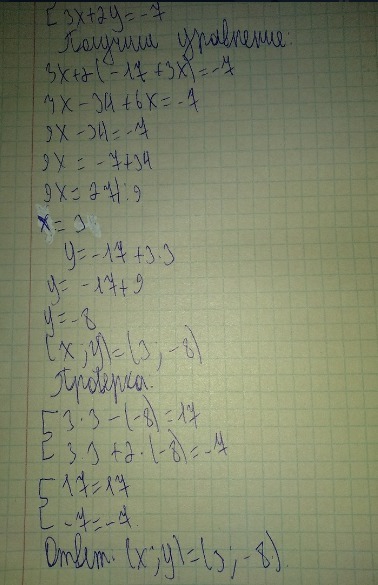 [3x+2y=-7
Получим уравнение:
3x+2(-17+3x)=-7
3x-34+6x=-7
9x-34=-7
9x=-7+34
9x=27|:9
x=3
y=-17+3·3
y=-17+9
y=-8
(x;y)=(3;-8)
Проверка.
[3·3-(-8)=17
[3·3+2·(-8)=-7
[17=17
[-7=-7
Ответ: (x;y)=(3;-8).